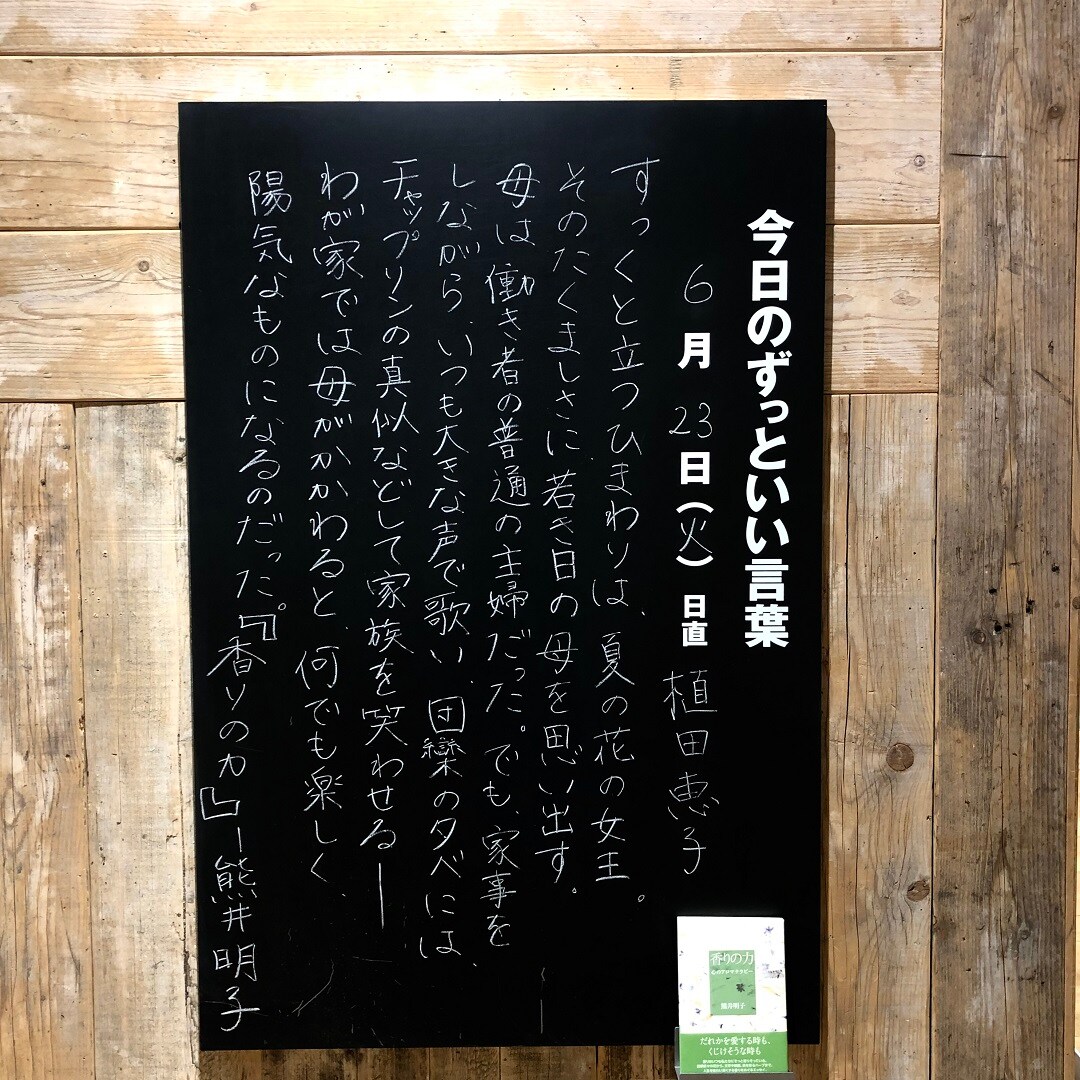 今日のずっといい言葉
6月23日(火)日直 植田恵子
すっくと立つひまわりは、夏の花の女王。
そのたくましさに、若き日の母を思い出す。
母は働き者の普通の主婦だった。でも、家事を
しながら、いつも大きな声で歌い、団欒の夕べには、
チャップリンの真似などして家族を笑わせる―
わが家では母がかかわると、何でも楽しく、
陽気なものになるのだった。『香りの力』―熊井明子
香りの力
心のアロマテラピー
熊井明子
だれかを愛する時も、
くじけそうな時も